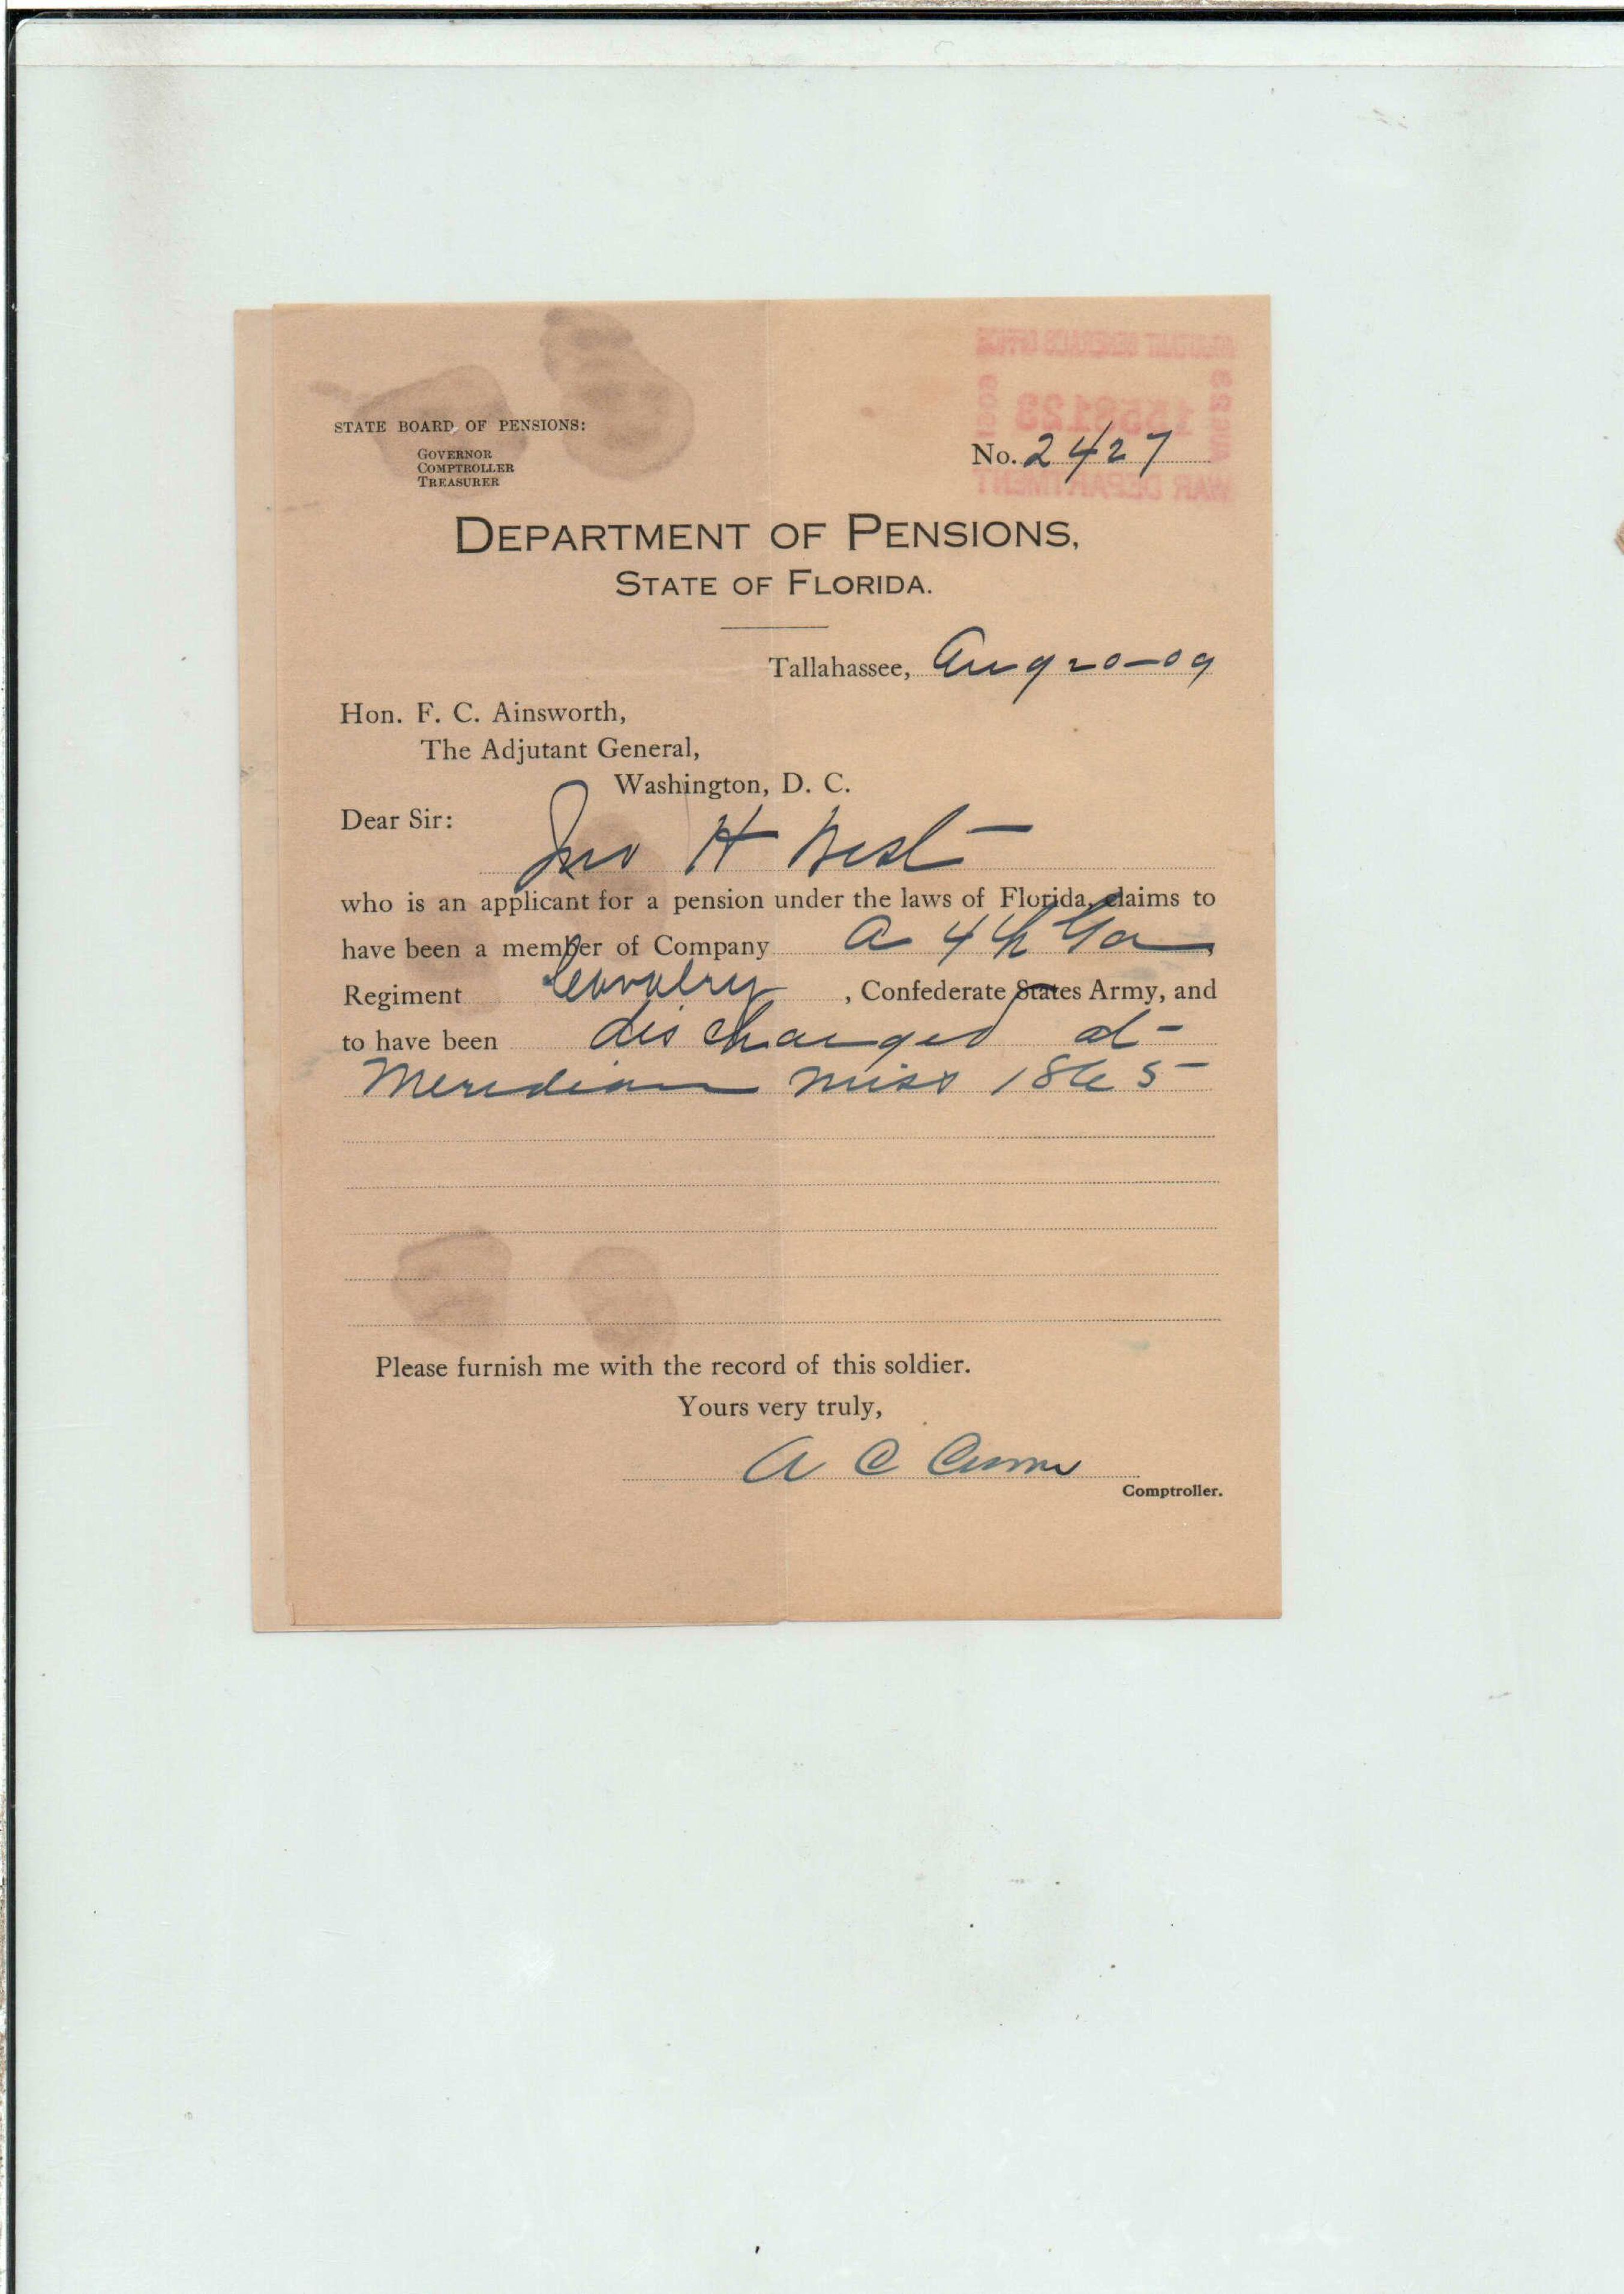 STATE BOARD OF PENSIONS:
GOVERNOR
COMPTROLLER
TREASURER
No. 2427
DEPARTMENT OF PENSIONS,
STATE OF FLORIDA.
Tallahassee, Aug 20-09
Hon. F. C. Ainsworth,
The Adjutant General,
Washington, D. C.
Dear Sir:
Jno H West
who is an applicant for a pension under the laws of Florida, claims to
have been a member of Company A 4th Ga
Regiment Cavalry, Confederate States Army, and
to have been discharged at
Meridian Miss 1865
Please furnish me with the record of this soldier.
Yours very truly,
A C Croom
Comptroller.